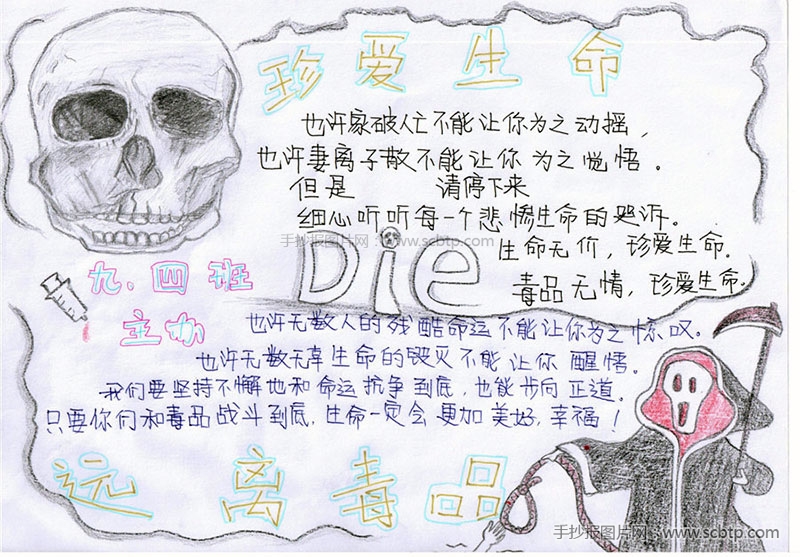 珍爱生命
也许家破人亡不能让你为之动摇，
也许妻离子散不能让你为之觉悟。
但是 请停下来
细心听听每一个悲惨生命的哭诉。
手抄报图片网：www.scbtp.com
生命无价，珍爱生命.
Die
毒品无情，珍爱生命.
九.四班
主办
也许无数人的残酷命运不能让你为之惊叹。
也许无数无辜生命的毁灭不能让你醒悟。
我们要坚持不懈地和命运抗争到底，也能步向正道。
只要你们和毒品战斗到底，生命一定会更加美好，幸福！
远离毒品
手抄报图片网：www.scbtp.com